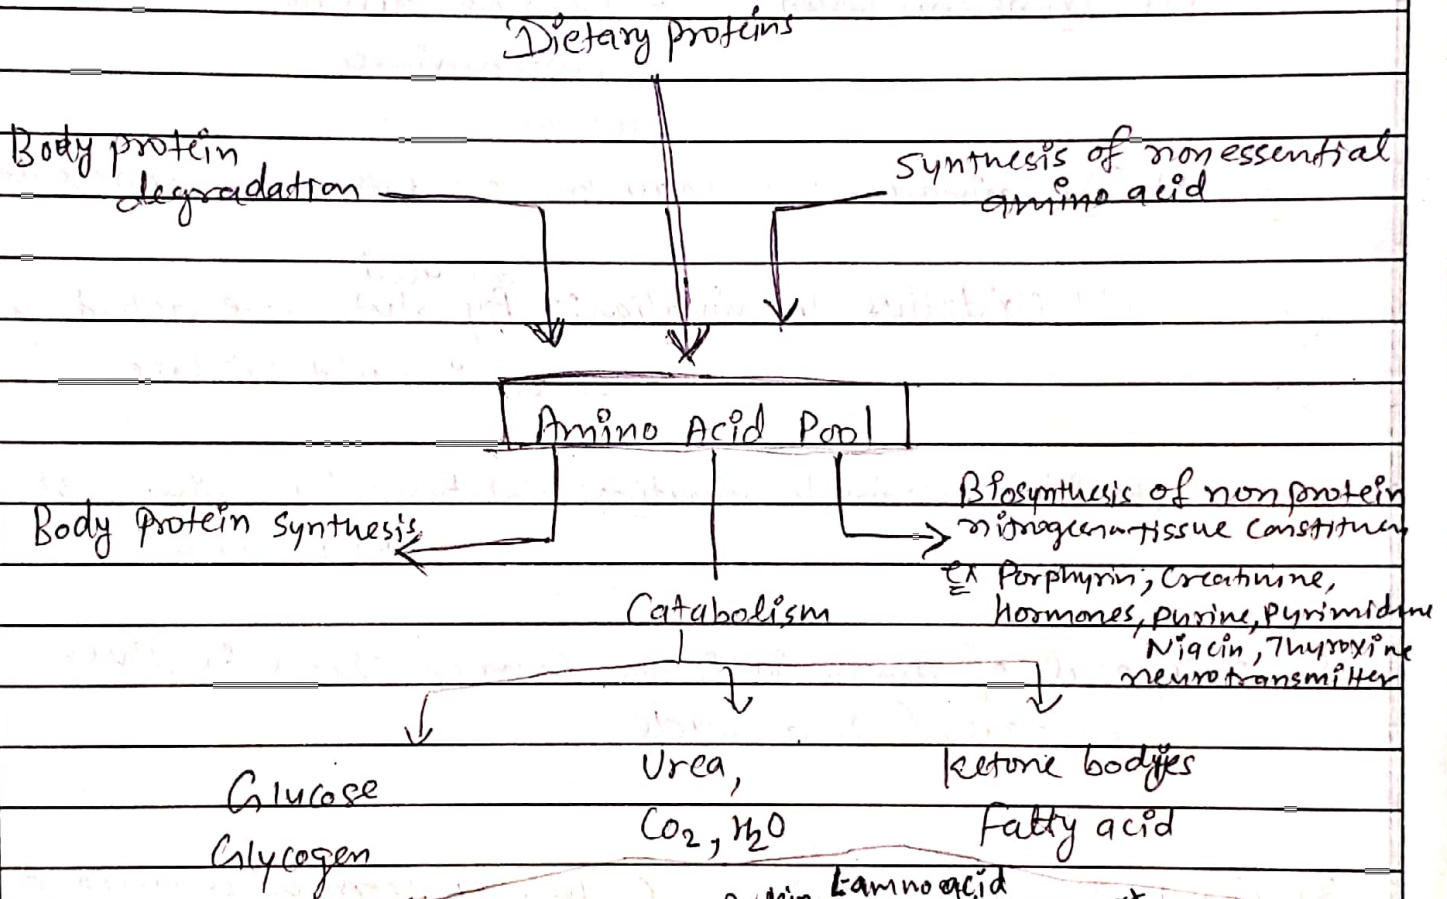 Dietary proteins
Body protein
degradation
Synthesis of nonessential
amino acid
Amino Acid Pool
Body protein synthesis
Biosynthesis of non protein
tissue
Ex Porphyrin, Creatinine,
hormones, purine, pyrimidine
Niacin, Thyroxine
neurotransmitter
Catabolism
Glucose
Glycogen
Urea,
CO2, H2O
Ketone bodies
Fatty acid